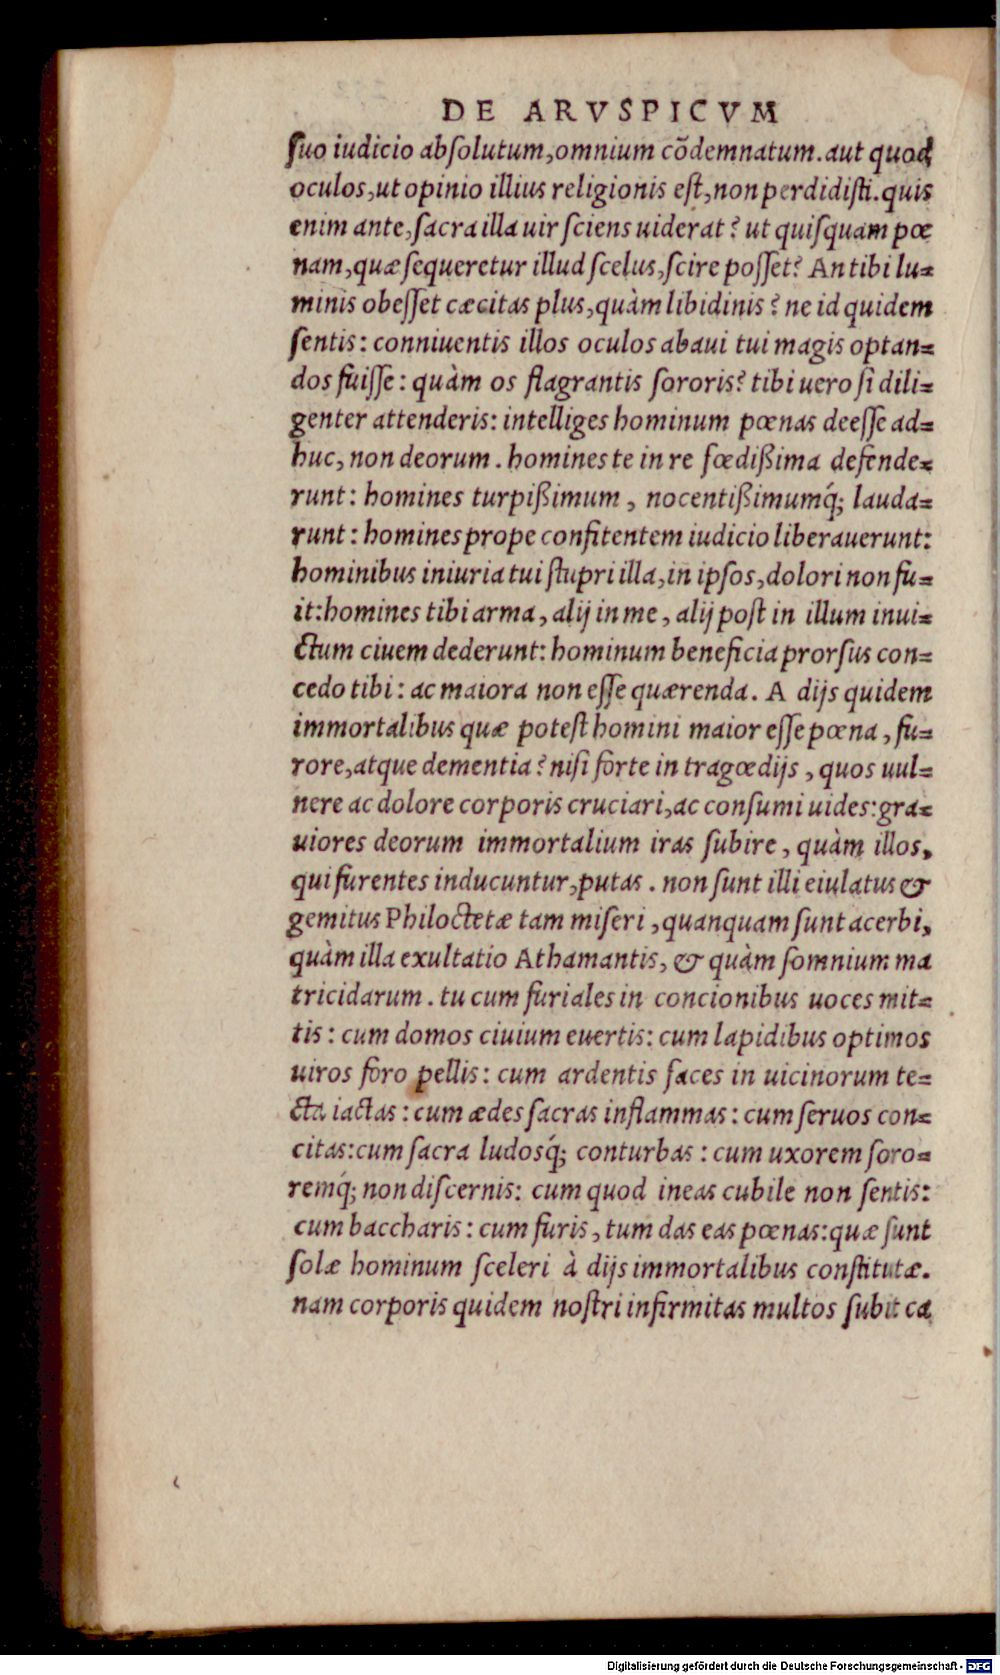 DE ARVSPICVM
ſuo iudicio abſolutum,omnium cõdemnatum. aut quod
oculos, ut opinio illius religionis eſt, non perdidiſti. quis
enim ante, ſacra illa uir ſciens uiderat? ut quiſquam pœ
nam, quæ ſequeretur illud ſcelus, ſcire poſſet? An tibi lu=
minis obeſſet cæcitas plus, quàm libidinis? ne id quidem
ſentis: conniuentis illos oculos abaui tui magis optan=
dos fuiſſe: quàm os flagrantis ſororis? tibi uero ſi dili=
genter attenderis: intelliges hominum pœnas deeſſe ad=
huc, non deorum. homines te in re fœdißima defende=
runt: homines turpißimum, nocentißimumq́; lauda=
runt: homines prope confitentem iudicio liberauerunt:
hominibus iniuria tui ſtupri illa, in ipſos, dolori non fu=
it: homines tibi arma, alij in me, alij poſt in illum inui=
ctum ciuem dederunt: hominum beneficia prorſus con=
cedo tibi: ac maiora non eſſe quærenda. A dijs quidem
immortalibus quæ poteſt homini maior eſſe pœna, fu=
rore, atque dementia? niſi forte in tragœdijs, quos uul=
nere ac dolore corporis cruciari, ac conſumi uides: gra=
uiores deorum immortalium iras ſubire, quàm illos,
qui furentes inducuntur, putas. non ſunt illi eiulatus &
gemitus Philoctetæ tam miſeri, quanquam ſunt acerbi,
quàm illa exultatio Athamantis, & quàm ſomnium ma
tricidarum. tu cum furiales in concionibus uoces mit=
tis: cum domos ciuium euertis: cum lapidibus optimos
uiros foro pellis: cum ardentis faces in uicinorum te=
cta iactas: cum ædes ſacras inflammas: cum ſeruos con=
citas: cum ſacra ludosq́; conturbas: cum uxorem ſoro=
remq́; non diſcernis: cum quod ineas cubile non ſentis:
cum baccharis: cum furis, tum das eas pœnas: quæ ſunt
ſolæ hominum ſceleri à dijs immortalibus conſtitutæ.
nam corporis quidem noſtri infirmitas multos ſubit ca
Digitalisierung gefördert durch die Deutsche Forschungsgemeinschaft - DFG